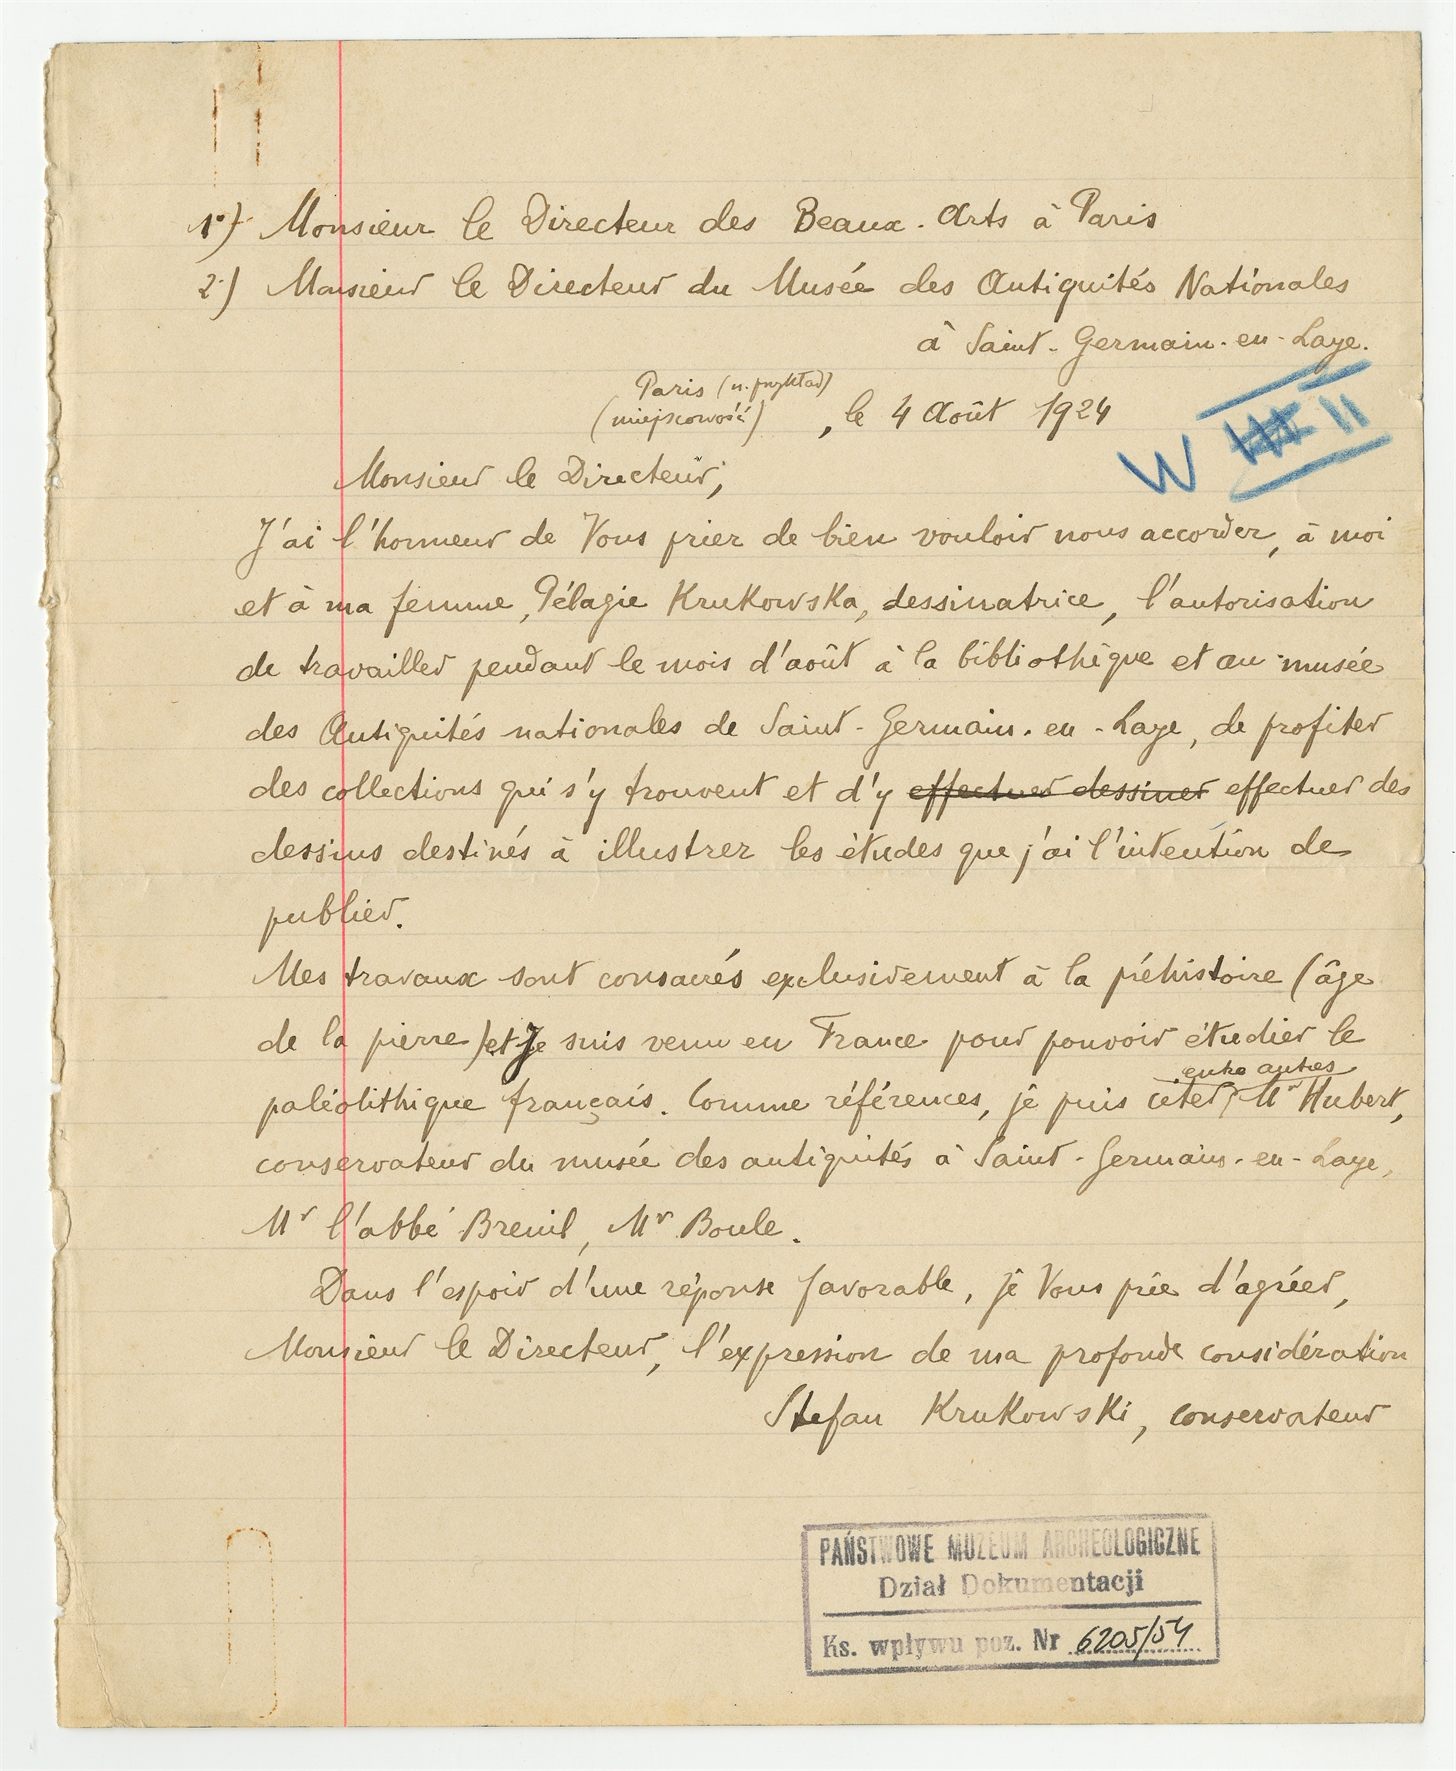 1°) Monsieur le Directeur des Beaux-Arts à Paris
2°) Monsieur le Directeur du Musée des Antiquités Nationales
à Saint-Germain-en-Laye.
Paris (n. przykład)
(miejscowość) , le 4 Août 1924
W II
Monsieur le Directeur,
J'ai l'honneur de Vous prier de bien vouloir nous accorder, à moi
et à ma femme, Pélagie Krukowska, dessinatrice, l'autorisation
de travailler pendant le mois d'août à la bibliothèque et au musée
des Antiquités nationales de Saint-Germain-en-Laye, de profiter
des collections qui s'y trouvent et d'y effectuer dessiner effectuer des
dessins destinés à illustrer les études que j'ai l'intention de
publier.
Mes travaux sont consacrés exclusivement à la préhistoire (âge
de la pierre) et je suis venu en France pour pouvoir étudier le
entre autres
paléolithique français. Comme références, je puis citer, Mr Hubert,
conservateur du musée des antiquités à Saint-Germain-en-Laye,
Mr l'abbé Breuil, Mr Boule.
Dans l'espoir d'une réponse favorable, je Vous prie d'agréer,
Monsieur le Directeur, l'expression de ma profonde considération
Stefan Krukowski, conservateur
PAŃSTWOWE MUZEUM ARCHEOLOGICZNE
Dział Dokumentacji
Ks. wpływu poz. Nr 6205/54